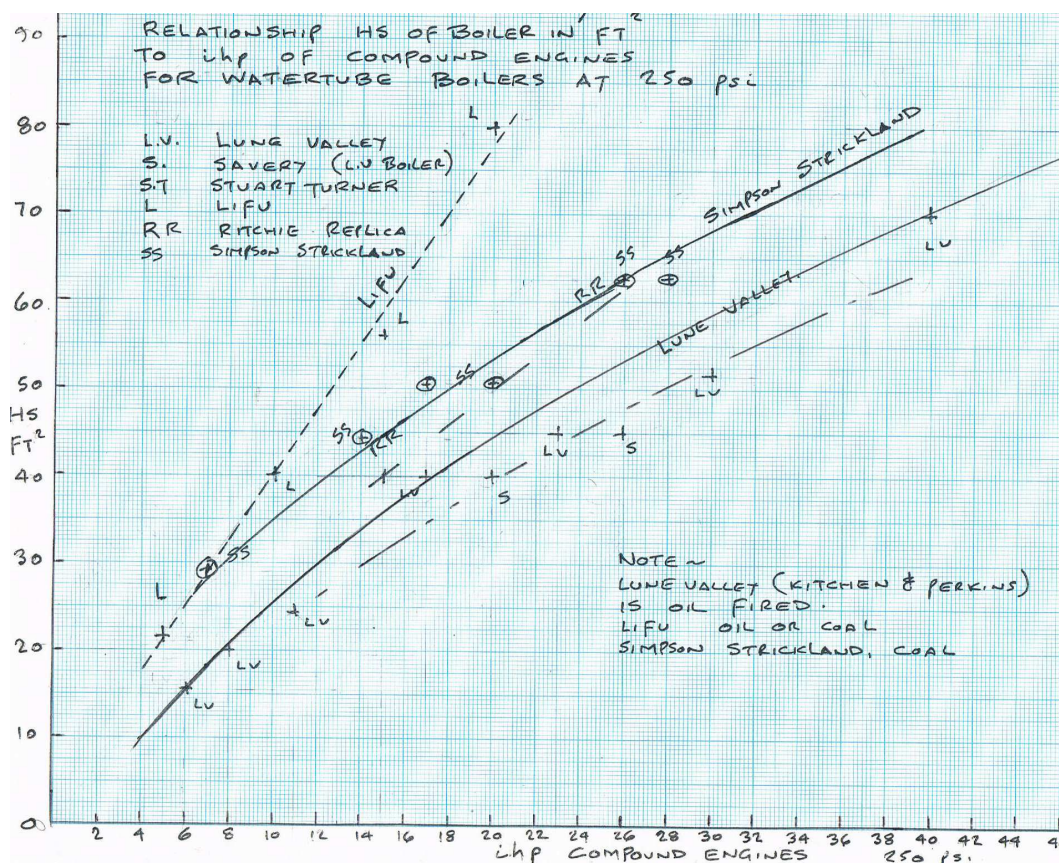 RELATIONSHIP HS OF BOILER IN FT²
TO ihp OF COMPOUND ENGINES
FOR WATERTUBE BOILERS AT 250 psi
L.V. LUNE VALLEY
S. SAVERY (L.V BOILER)
S.T STUART TURNER
L LIFU
RR RITCHIE REPLICA
SS SIMPSON STRICKLAND
90
80
70
60
50
HS
FT²
40
30
20
10
0
L
LIFU
L
L
L
SIMPSON STRICKLAND
SS
SS
RR
SS
SS
RR
SS
LUNE VALLEY.
LV
LV
LV
S
LV
S
LV
LV
LV
NOTE ~
LUNE VALLEY (KITCHEN & PERKINS)
IS OIL FIRED.
LIFU OIL OR COAL
SIMPSON STRICKLAND, COAL
2 4 6 8 10 12 14 16 18 20 22 24 26 28 30 32 34 36 38 40 42 44
ihp COMPOUND ENGINES 250 psi